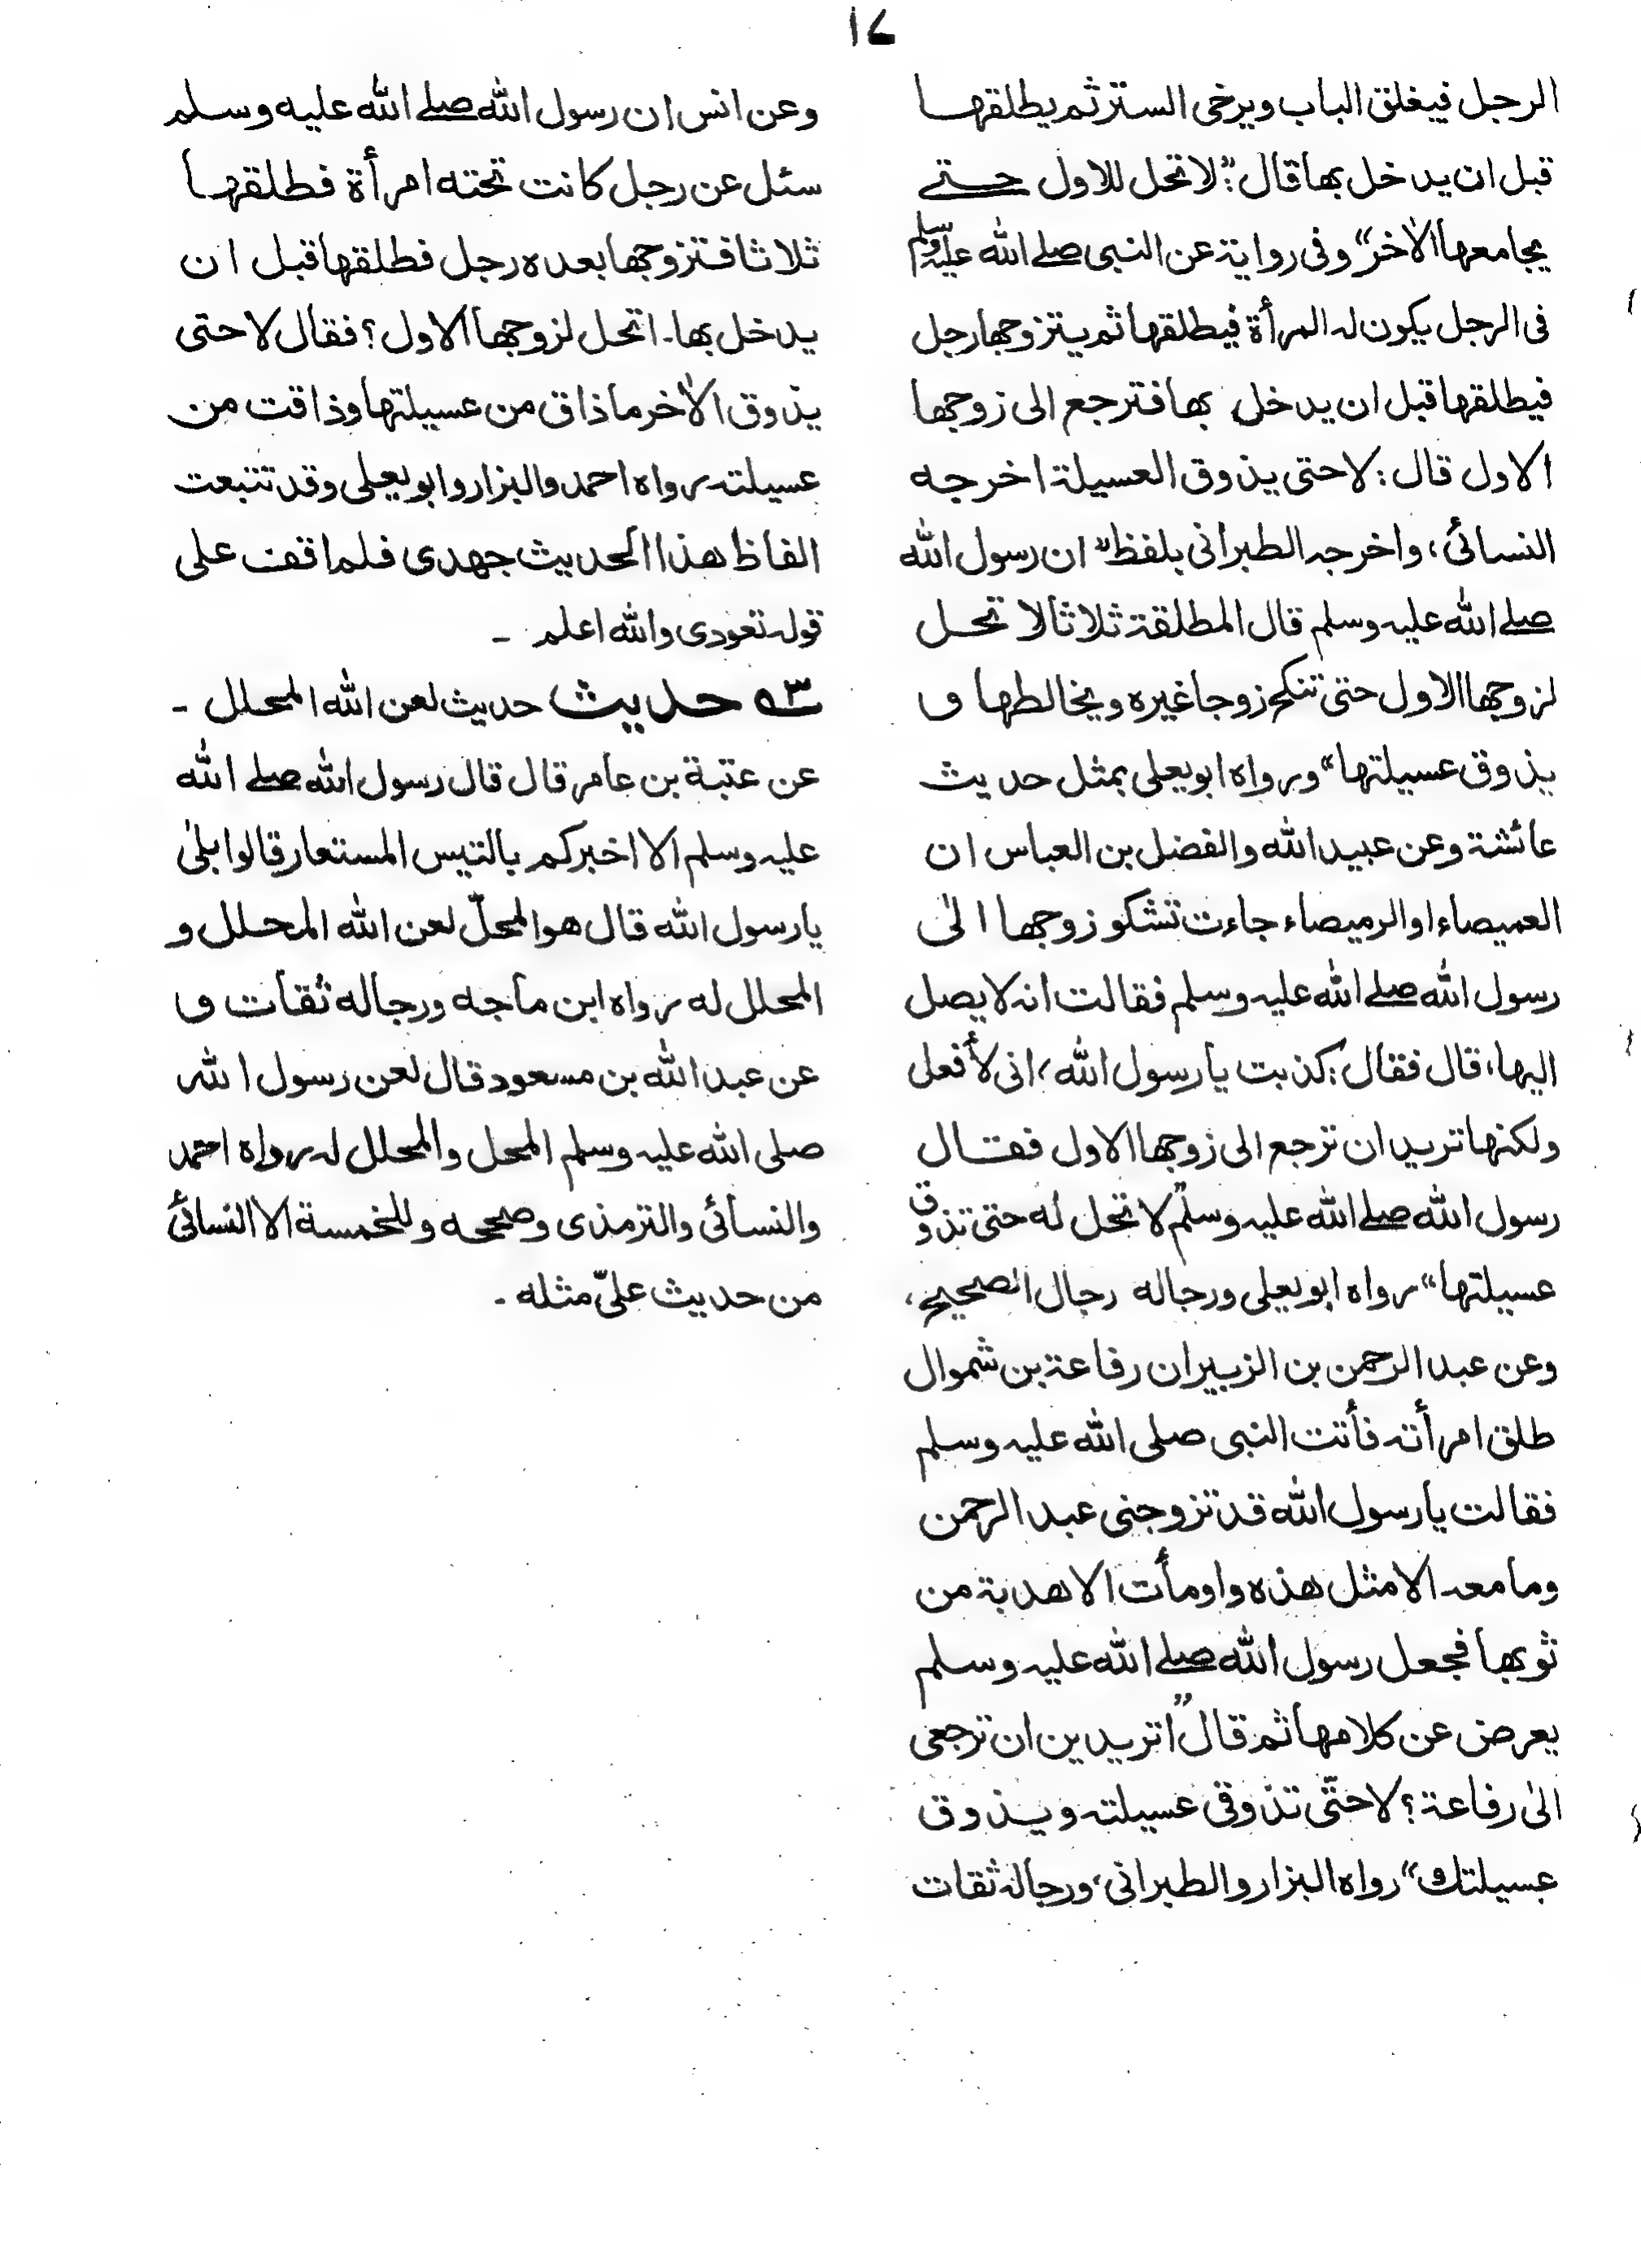 ۱۷
الرجل فيغلق الباب ويرخى الستر ثم يطلقها
قبل ان يدخل بها قال: "لا تحل للاول حتے
يجامعها الاٰخر" وفى رواية عن النبى صلے الله عليه وسلم
فى الرجل يكون له المرأة فيطلقها ثم يتزوجها رجل
فيطلقها قبل ان يدخل بها فترجع الى زوجها
الاول قال: لا حتى يذوق العسيلة اخرجه
النسائى، واخرجه الطبرانى بلفظ "ان رسول الله
صلے الله عليه وسلم قال المطلقة ثلاثا لا تحل
لزوجها الاول حتى تنكح زوجا غيره ويخالطها و
يذوق عسيلتها" ورواه ابويعلى بمثل حديث
عائشة وعن عبيد الله والفضل بن العباس ان
العميصاء او الرميصاء جاءت تشكو زوجها الىٰ
رسول الله صلے الله عليه وسلم فقالت انه لا يصل
اليها، قال فقال: كذبت يا رسول الله، انى لأفعل
ولكنها تريد ان ترجع الى زوجها الاول فقال
رسول الله صلے الله عليه وسلم "لا تحل له حتى تذوق
عسيلتها" رواه ابويعلى ورجاله رجال الصحيح،
وعن عبد الرحمن بن الزبير ان رفاعة بن شموال
طلق امرأته فأتت النبى صلى الله عليه وسلم
فقالت يا رسول الله قد تزوجنى عبد الرحمن
وما معه الا مثل هذه واومأت الا هدبة من
ثوبها فجعل رسول الله صلے الله عليه وسلم
يعرض عن كلامها ثم قال "اتريدين ان ترجعى
الىٰ رفاعة؟ لا حتّى تذوقى عسيلته ويذوق
عسيلتك" رواه البزار والطبرانى، ورجاله ثقات
وعن انس ان رسول الله صلے الله عليه وسلم
سئل عن رجل كانت تحته امرأة فطلقها
ثلاثا فتزوجها بعده رجل فطلقها قبل ان
يدخل بها۔ اتحل لزوجها الاول؟ فقال لا حتى
يذوق الاٰخر ما ذاق من عسيلتها وذاقت من
عسيلته رواه احمد والبزار وابويعلى وقد تتبعت
الفاظ هذا الحديث جهدى فلم اقف على
قوله تعودى والله اعلم ۔
۵۳ حديث حديث لعن الله المحلل ۔
عن عتبة بن عامر قال قال رسول الله صلے الله
عليه وسلم الا اخبركم بالتيس المستعار قالوا بلىٰ
يا رسول الله قال هو المحلّ لعن الله المحلل و
المحلل له رواه ابن ماجه ورجاله ثقات و
عن عبد الله بن مسعود قال لعن رسول الله
صلى الله عليه وسلم المحل والمحلل له رواه احمد
والنسائى والترمذى وصححه وللخمسة الا النسائى
من حديث علىّ مثله ۔